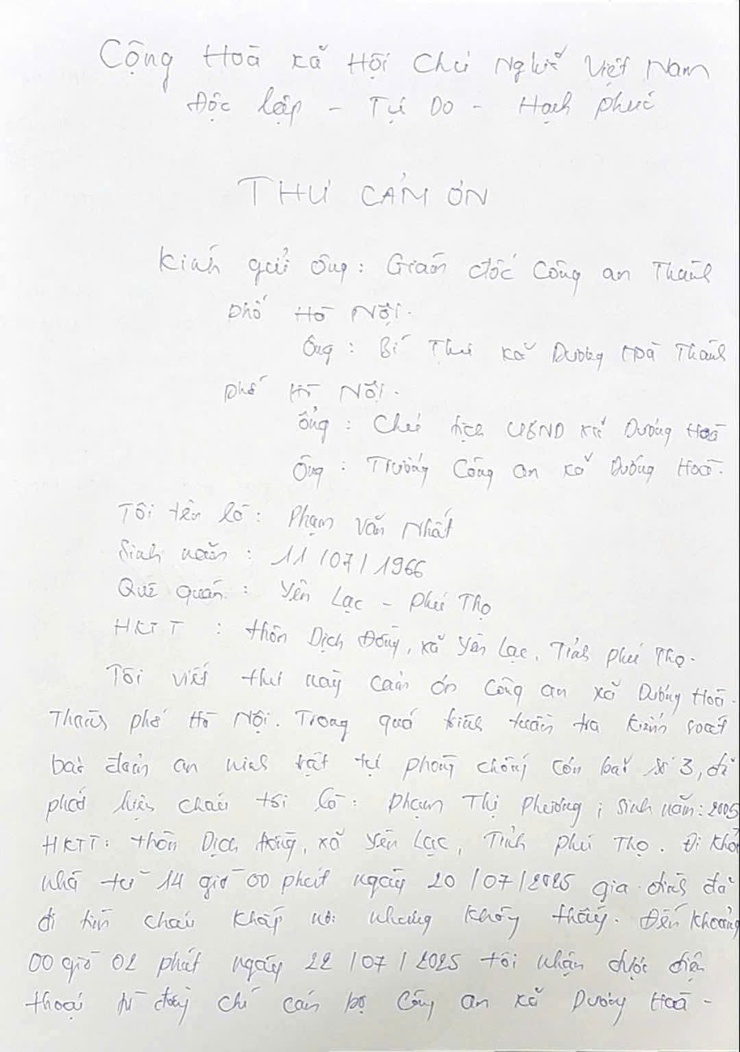 Cộng Hoà xã Hội Chủ Nghĩa Việt Nam
Độc lập - Tự Do - Hạnh phúc
THƯ CẢM ƠN
Kính gửi ông: Giám đốc Công an Thành
phố Hà Nội.
Ông: Bí Thư xã Dương Hoà Thành
phố Hà Nội.
Ông: Chủ tịch UBND xã Dương Hoà
Ông: Trưởng Công an xã Dương Hoà.
Tôi tên là: Phạm Văn Nhất
Sinh năm: 11/07/1966
Quê quán: Yên Lạc - Phú Thọ
HKTT: thôn Dịch Đồng, xã Yên Lạc, Tỉnh Phú Thọ.
Tôi viết thư này cảm ơn Công an xã Dương Hoà.
Thành phố Hà Nội. Trong quá trình tuần tra kiểm soát
bảo đảm an ninh trật tự phòng chống cơn bão số 3, đã
phát hiện cháu tôi là: Phạm Thị Phương; sinh năm: 2005
HKTT: thôn Dịch Đồng, xã Yên Lạc, Tỉnh Phú Thọ. Đi khỏi
nhà từ 14 giờ 00 phút ngày 20/07/2025 gia đình đã
đi tìm cháu khắp nơi nhưng không thấy. Đến khoảng
00 giờ 02 phút ngày 22/07/2025 tôi nhận được điện
thoại từ đồng chí cán bộ Công an xã Dương Hoà -